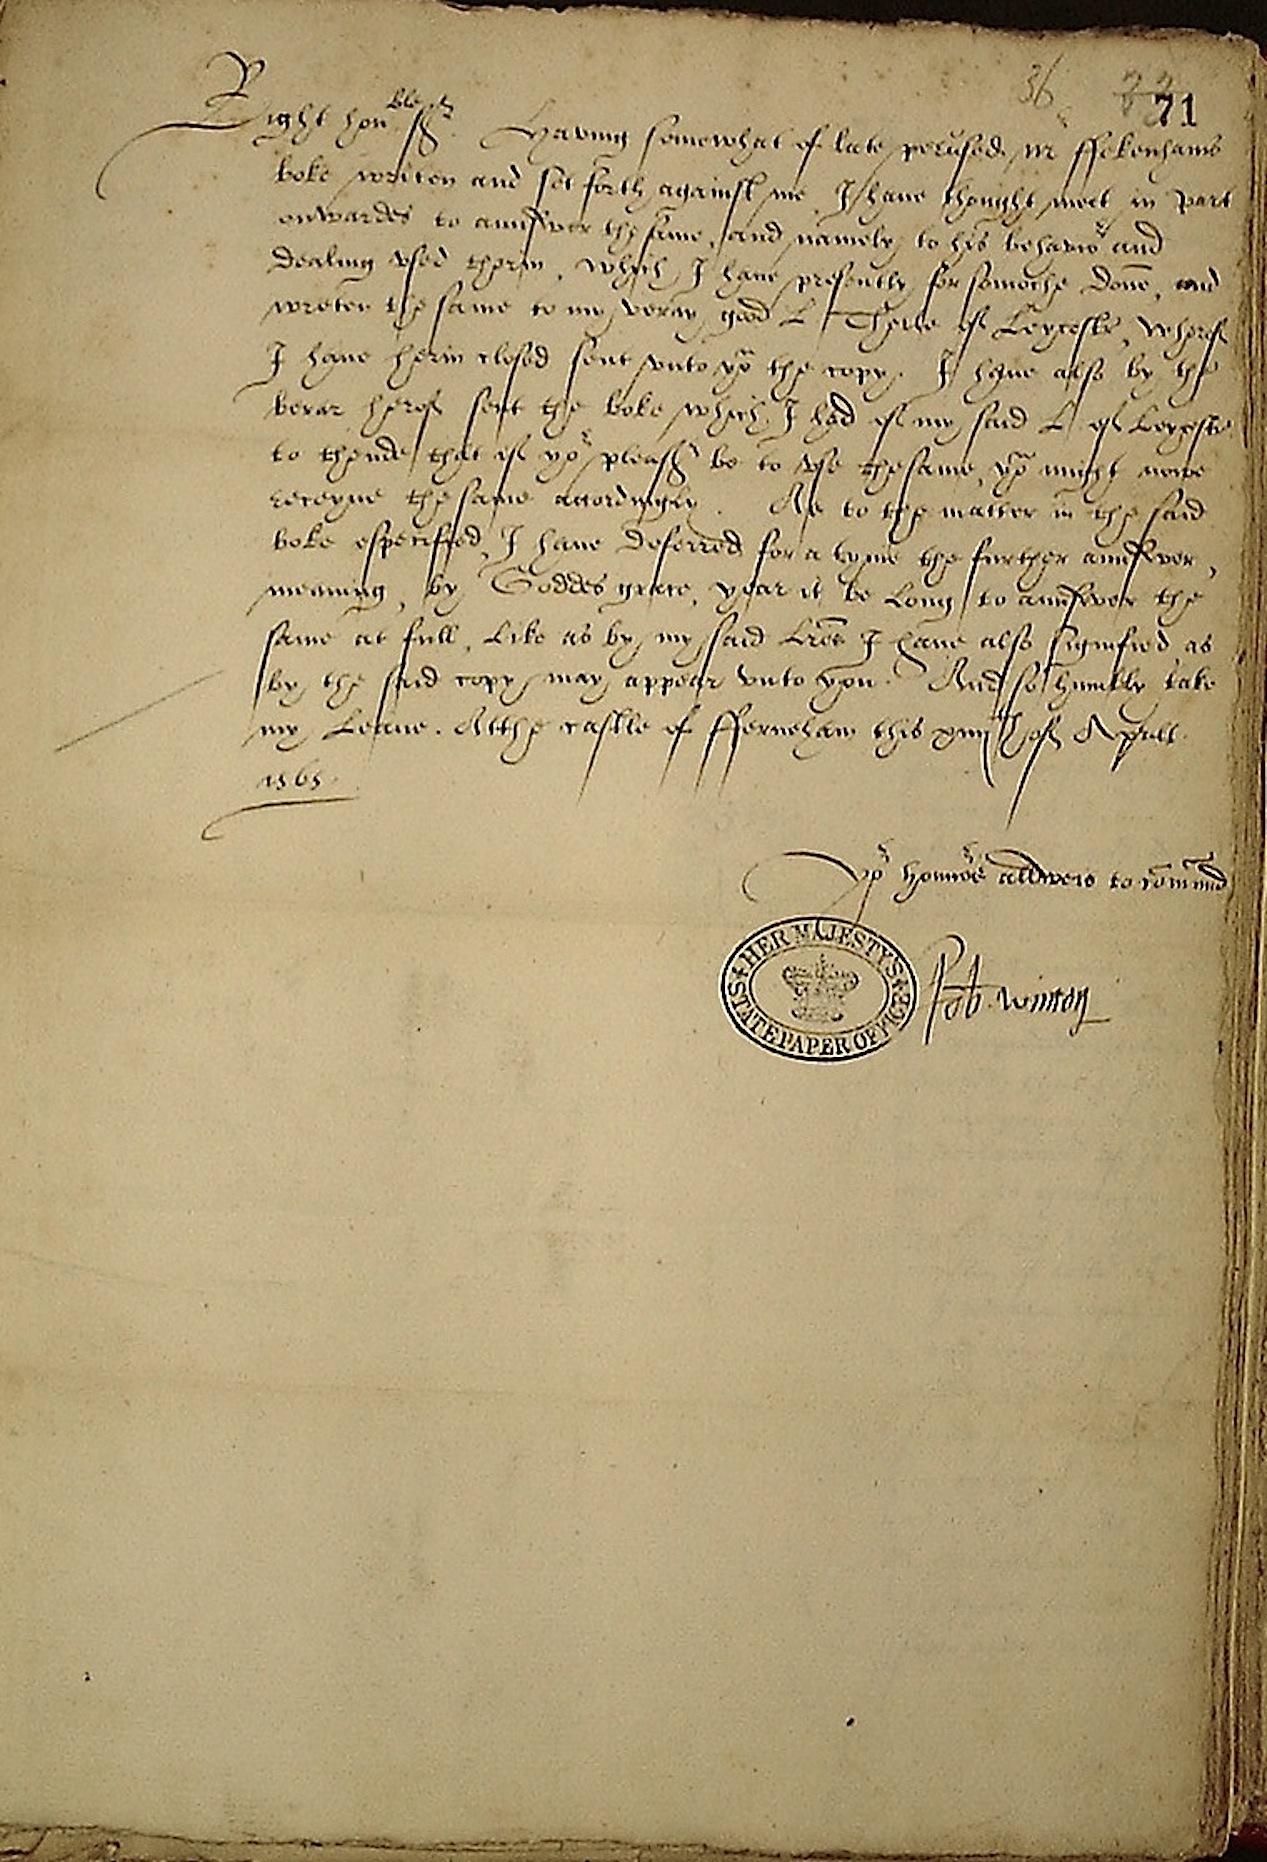 36 32
71
Right hon:ble Sr. Having somewhat of late perused Mr ffekenhams
boke writen and set forth against me, I have thought meet in part
onwardes to aunswer the same, and namely to his behavior and
dealing vsed therin, which I have presently for somoche done, and
wreten the same to my veray good L Therle of Leycestre, wherof
I have herin closed sent vnto yor the copy. I have also by the
berar herof sent the boke which I had of my said L of Leycestre
to thende that if yor pleasr be to vse the same, yor might nowe
receyve the same accordingly. As to the matter in the said
boke especified, I have deferred for a tyme the further aunswer,
meaning, by Goddes grace, year it be long to aunswer the
same at full, Like as by my said Lres I have also signified as
by the said copy may appear vnto you. And so humbly take
my Leave. At the castle of fferneham this xxiijth of Aprill
1565.
Yor honnors allweis to comaund
Rob. winton
HER MAJESTY'S STATE PAPER OFFICE